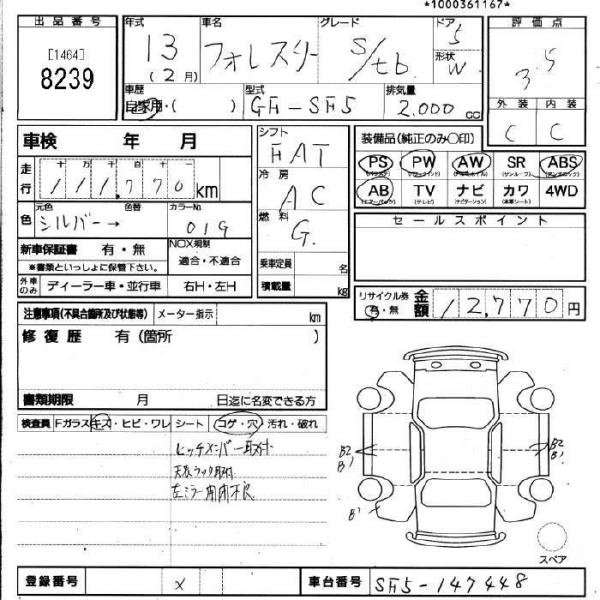 *1000361167*
出品番号
[1464]
8239
年式 13 (2月)
車名 フォレスター
グレード S/tb
ドア 5
形状 W
評価点
3.5
外装 内装
C C
車歴
自家用・( )
型式 GF-SF5
排気量 2.000 cc
車検 年 月
走行 十 万 千 百 十
111,770 km
シフト FAT
冷房 AC
燃料 G.
乗車定員 名
積載量 kg
装備品(純正のみ○印)
PS PW AW SR ABS
AB TV ナビ カワ 4WD
セールスポイント
色
元色 色替 カラーNo
シルバー→ 019
新車保証書 有・無
※書類といっしょに保管下さい。
NOX規制
適合・不適合
外車のみ ディーラー車・並行車 右H・左H
リサイクル券
有・無
金額 12,770円
注意事項(不具合箇所及び状態等) メーター指示 km
修復歴 有(箇所 )
書類期限 月 日迄に名変できる方
検査員 Fガラス キズ・ヒビ・ワレ シート コゲ・穴 汚れ・破れ
ヒッチメンバー取付
天井ラック取付
左ミラー開閉不良
B2
B1
B2
B1
B1
スペア
登録番号 x
車台番号 SF5-147448